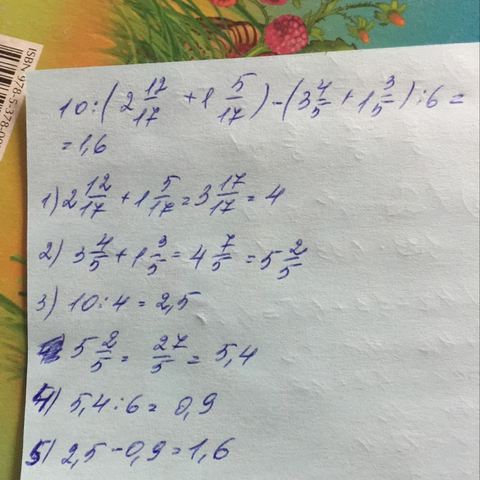 ISBN 978-5-378-00
10:(2 12/17 + 1 5/17) - (3 4/5 + 1 3/5) : 6 =
= 1,6
1) 2 12/17 + 1 5/17 = 3 17/17 = 4
2) 3 4/5 + 1 3/5 = 4 7/5 = 5 2/5
3) 10 : 4 = 2,5
5 2/5 = 27/5 = 5,4
4) 5,4 : 6 = 0,9
5) 2,5 - 0,9 = 1,6